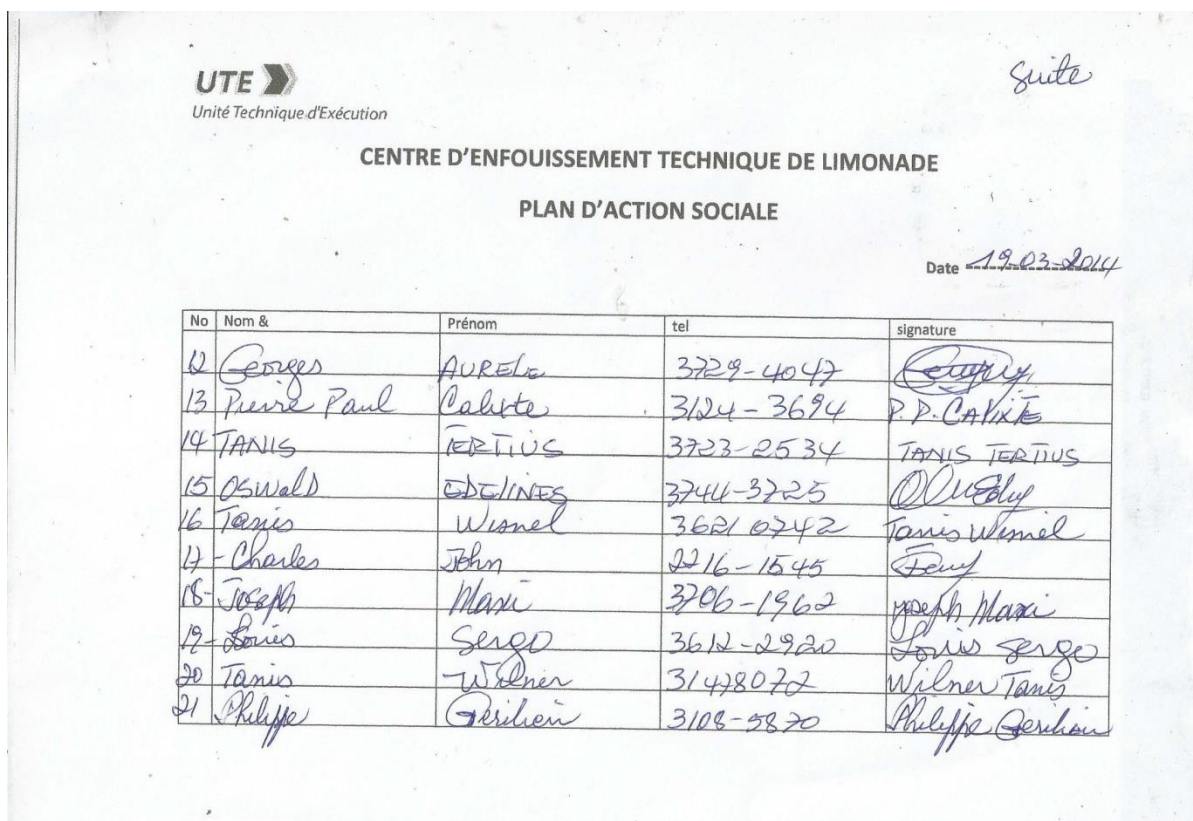 Suite
UTE
Unité Technique d'Exécution
CENTRE D'ENFOUISSEMENT TECHNIQUE DE LIMONADE
PLAN D'ACTION SOCIALE
Date 19-03-2014
No Nom & Prénom tel signature
12 Georges AURELE 3729-4047
13 Pierre Paul Calixte 3124-3694 P.P. CALIXTE
14 TANIS TERTIUS 3723-2534 TANIS TERTIUS
15 OSWALD EDELINES 3744-3725
16 Tanis Wisnel 3621 0742 Tanis Wisnel
17 - Charles John 2216-1545
18 - Joseph Maxi 3706-1962 Joseph Maxi
19 - Louis Sergo 3612-2920 Louis Sergo
20 Tanis Wilner 31478072 Wilner Tanis
21 Philippe 3108-5870 Philippe